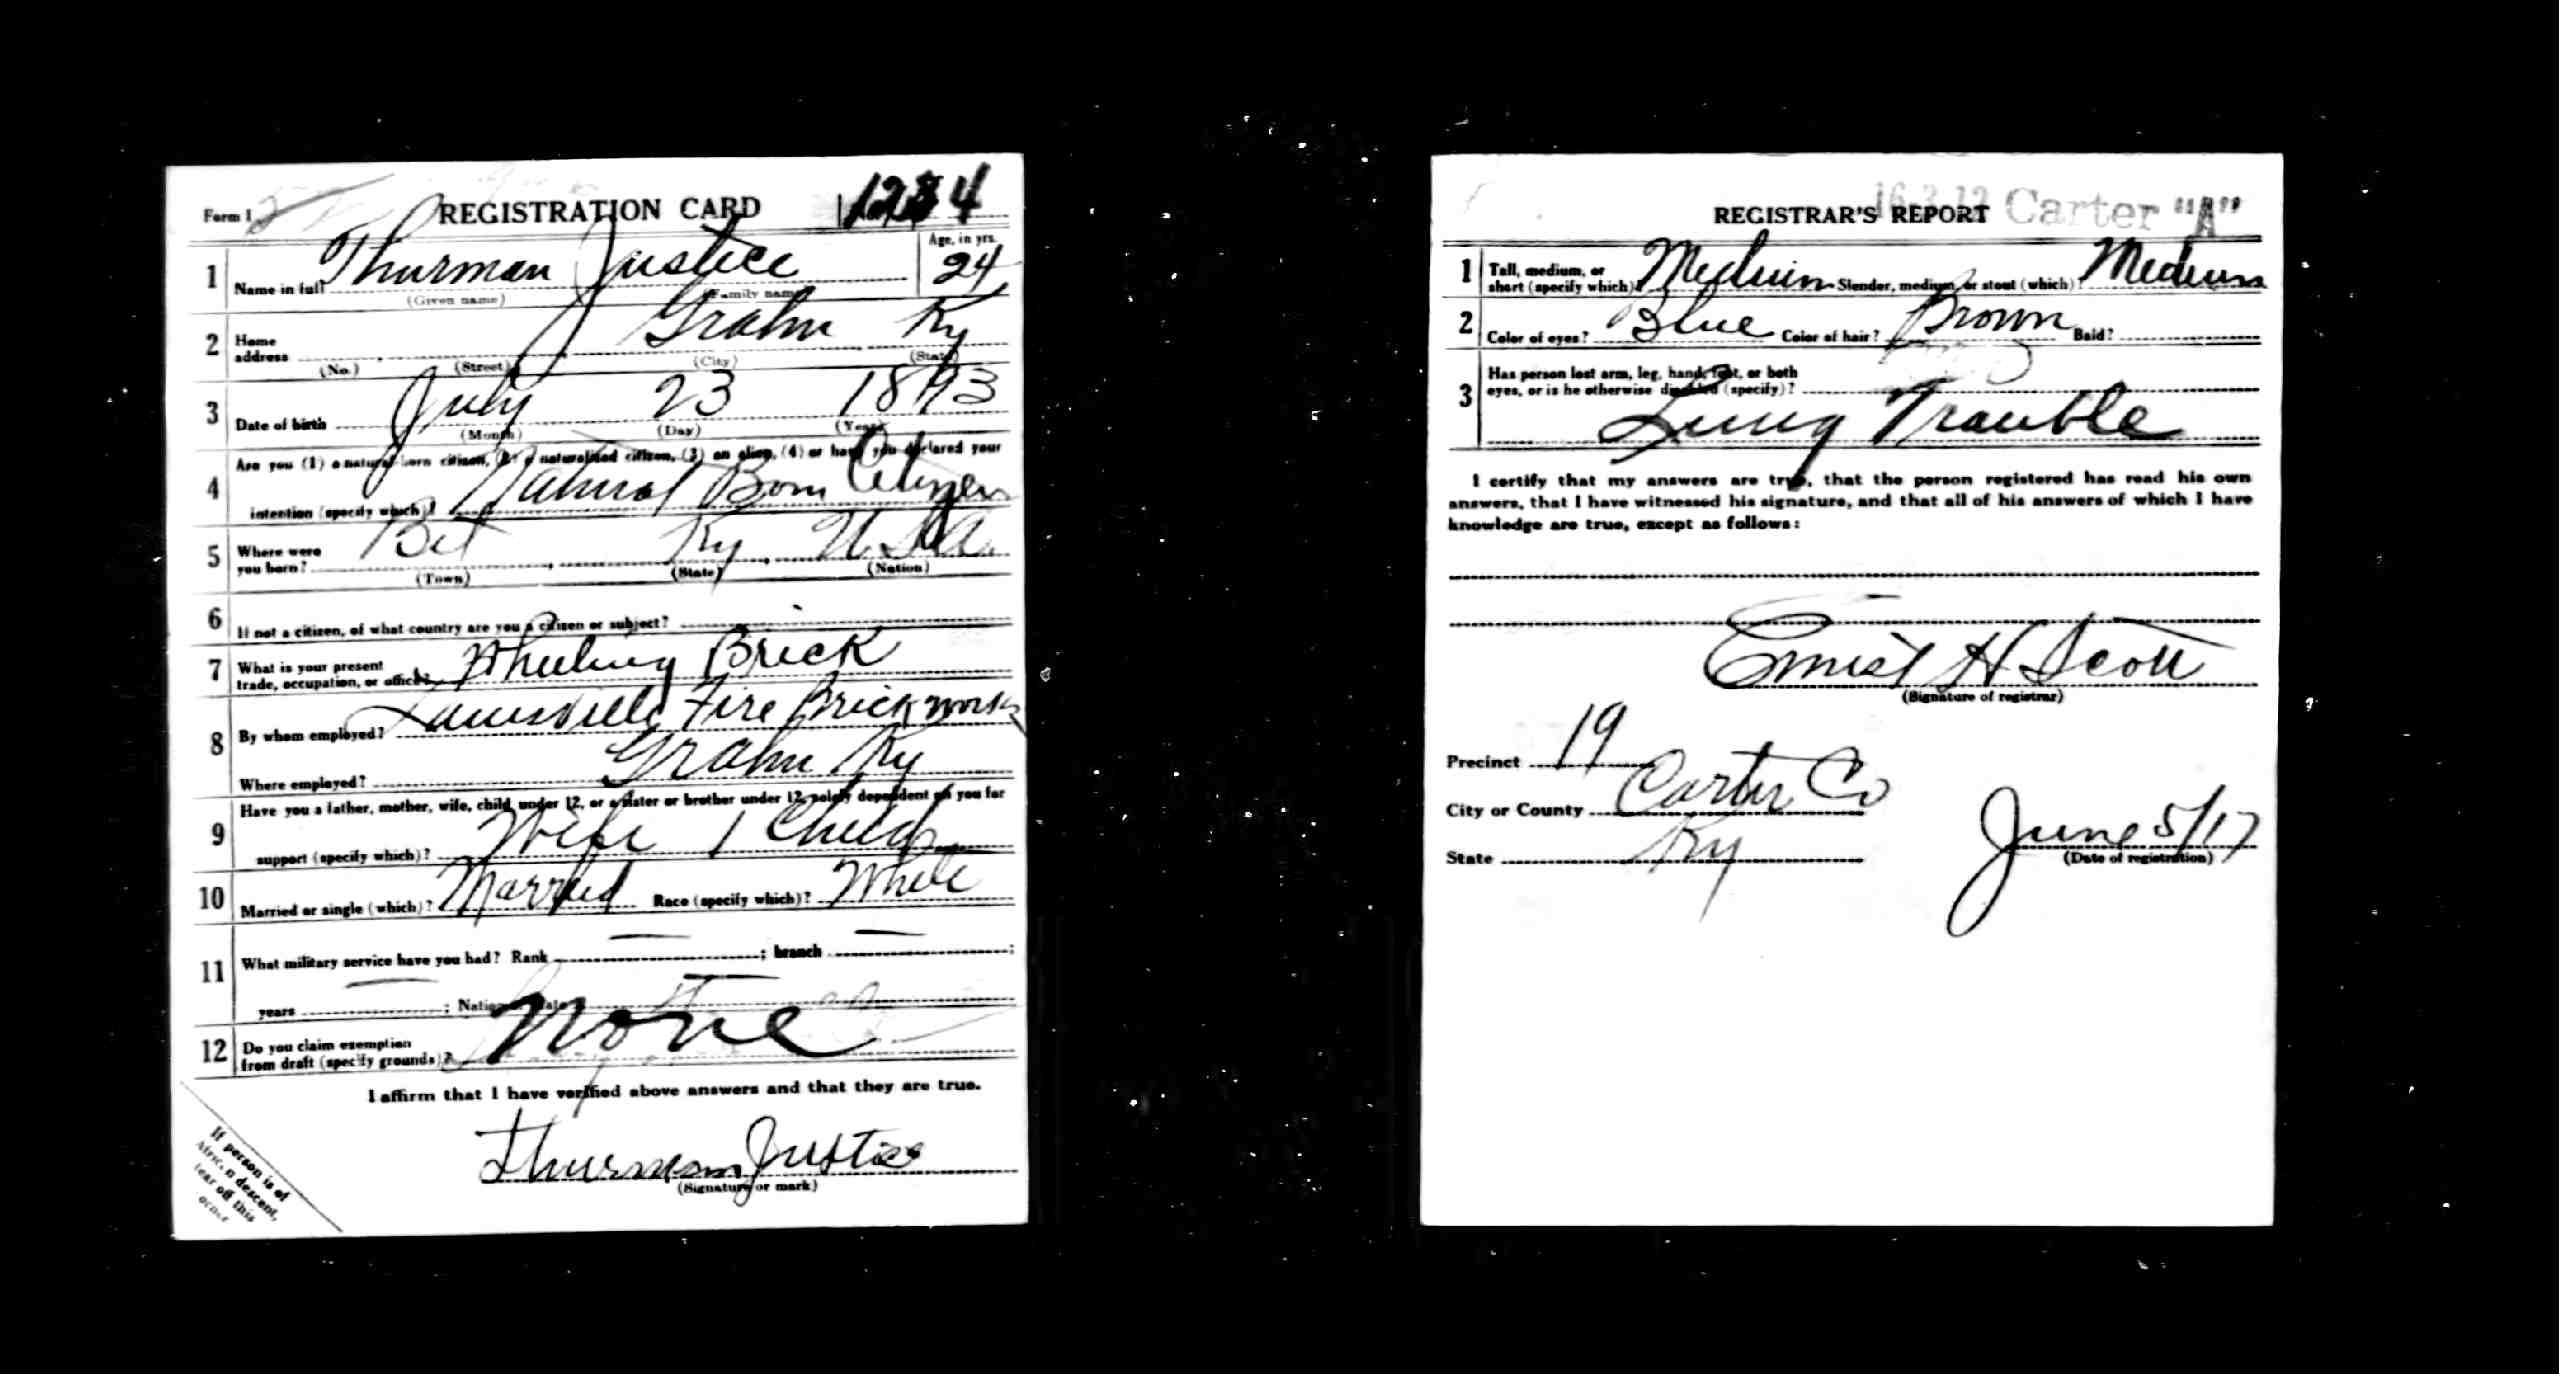 Form 1 REGISTRATION CARD
1 Name in full Thurman Justice Age, in yrs. 24
(Given name) (Family name)
2 Home address Grahn Ky
(No.) (Street) (City) (State)
3 Date of birth July 23 1893
(Month) (Day) (Year)
Are you (1) a natural-born citizen, (2) a naturalized citizen, (3) an alien, (4) or have you declared your
4 intention (specify which)? Natural Born Citizen
5 Where were you born? Ky U.S.A.
(Town) (State) (Nation)
6 If not a citizen, of what country are you a citizen or subject?
7 What is your present trade, occupation, or office? Wheeling Brick
8 By whom employed? Louisville Fire Brick works
Where employed? Grahn Ky
Have you a father, mother, wife, child under 12, or a sister or brother under 12, solely dependent on you for
9 support (specify which)? Wife 1 Child
10 Married or single (which)? Married Race (specify which)? White
11 What military service have you had? Rank — ; branch — ;
years — ; Nation or State —
12 Do you claim exemption from draft (specify grounds)? None
I affirm that I have verified above answers and that they are true.
Thurman Justice
(Signature or mark)
If person is of
African descent,
tear off this
corner
REGISTRAR'S REPORT 16-3-12 Carter "A"
1 Tall, medium, or short (specify which)? Medium Slender, medium, or stout (which)? Medium
2 Color of eyes? Blue Color of hair? Brown Bald?
3 Has person lost arm, leg, hand, foot, or both
eyes, or is he otherwise disabled (specify)?
Lung Trouble
I certify that my answers are true, that the person registered has read his own
answers, that I have witnessed his signature, and that all of his answers of which I have
knowledge are true, except as follows:
Ernest H Scott
(Signature of registrar)
Precinct 19
City or County Carter Co
State Ky June 5/17
(Date of registration)